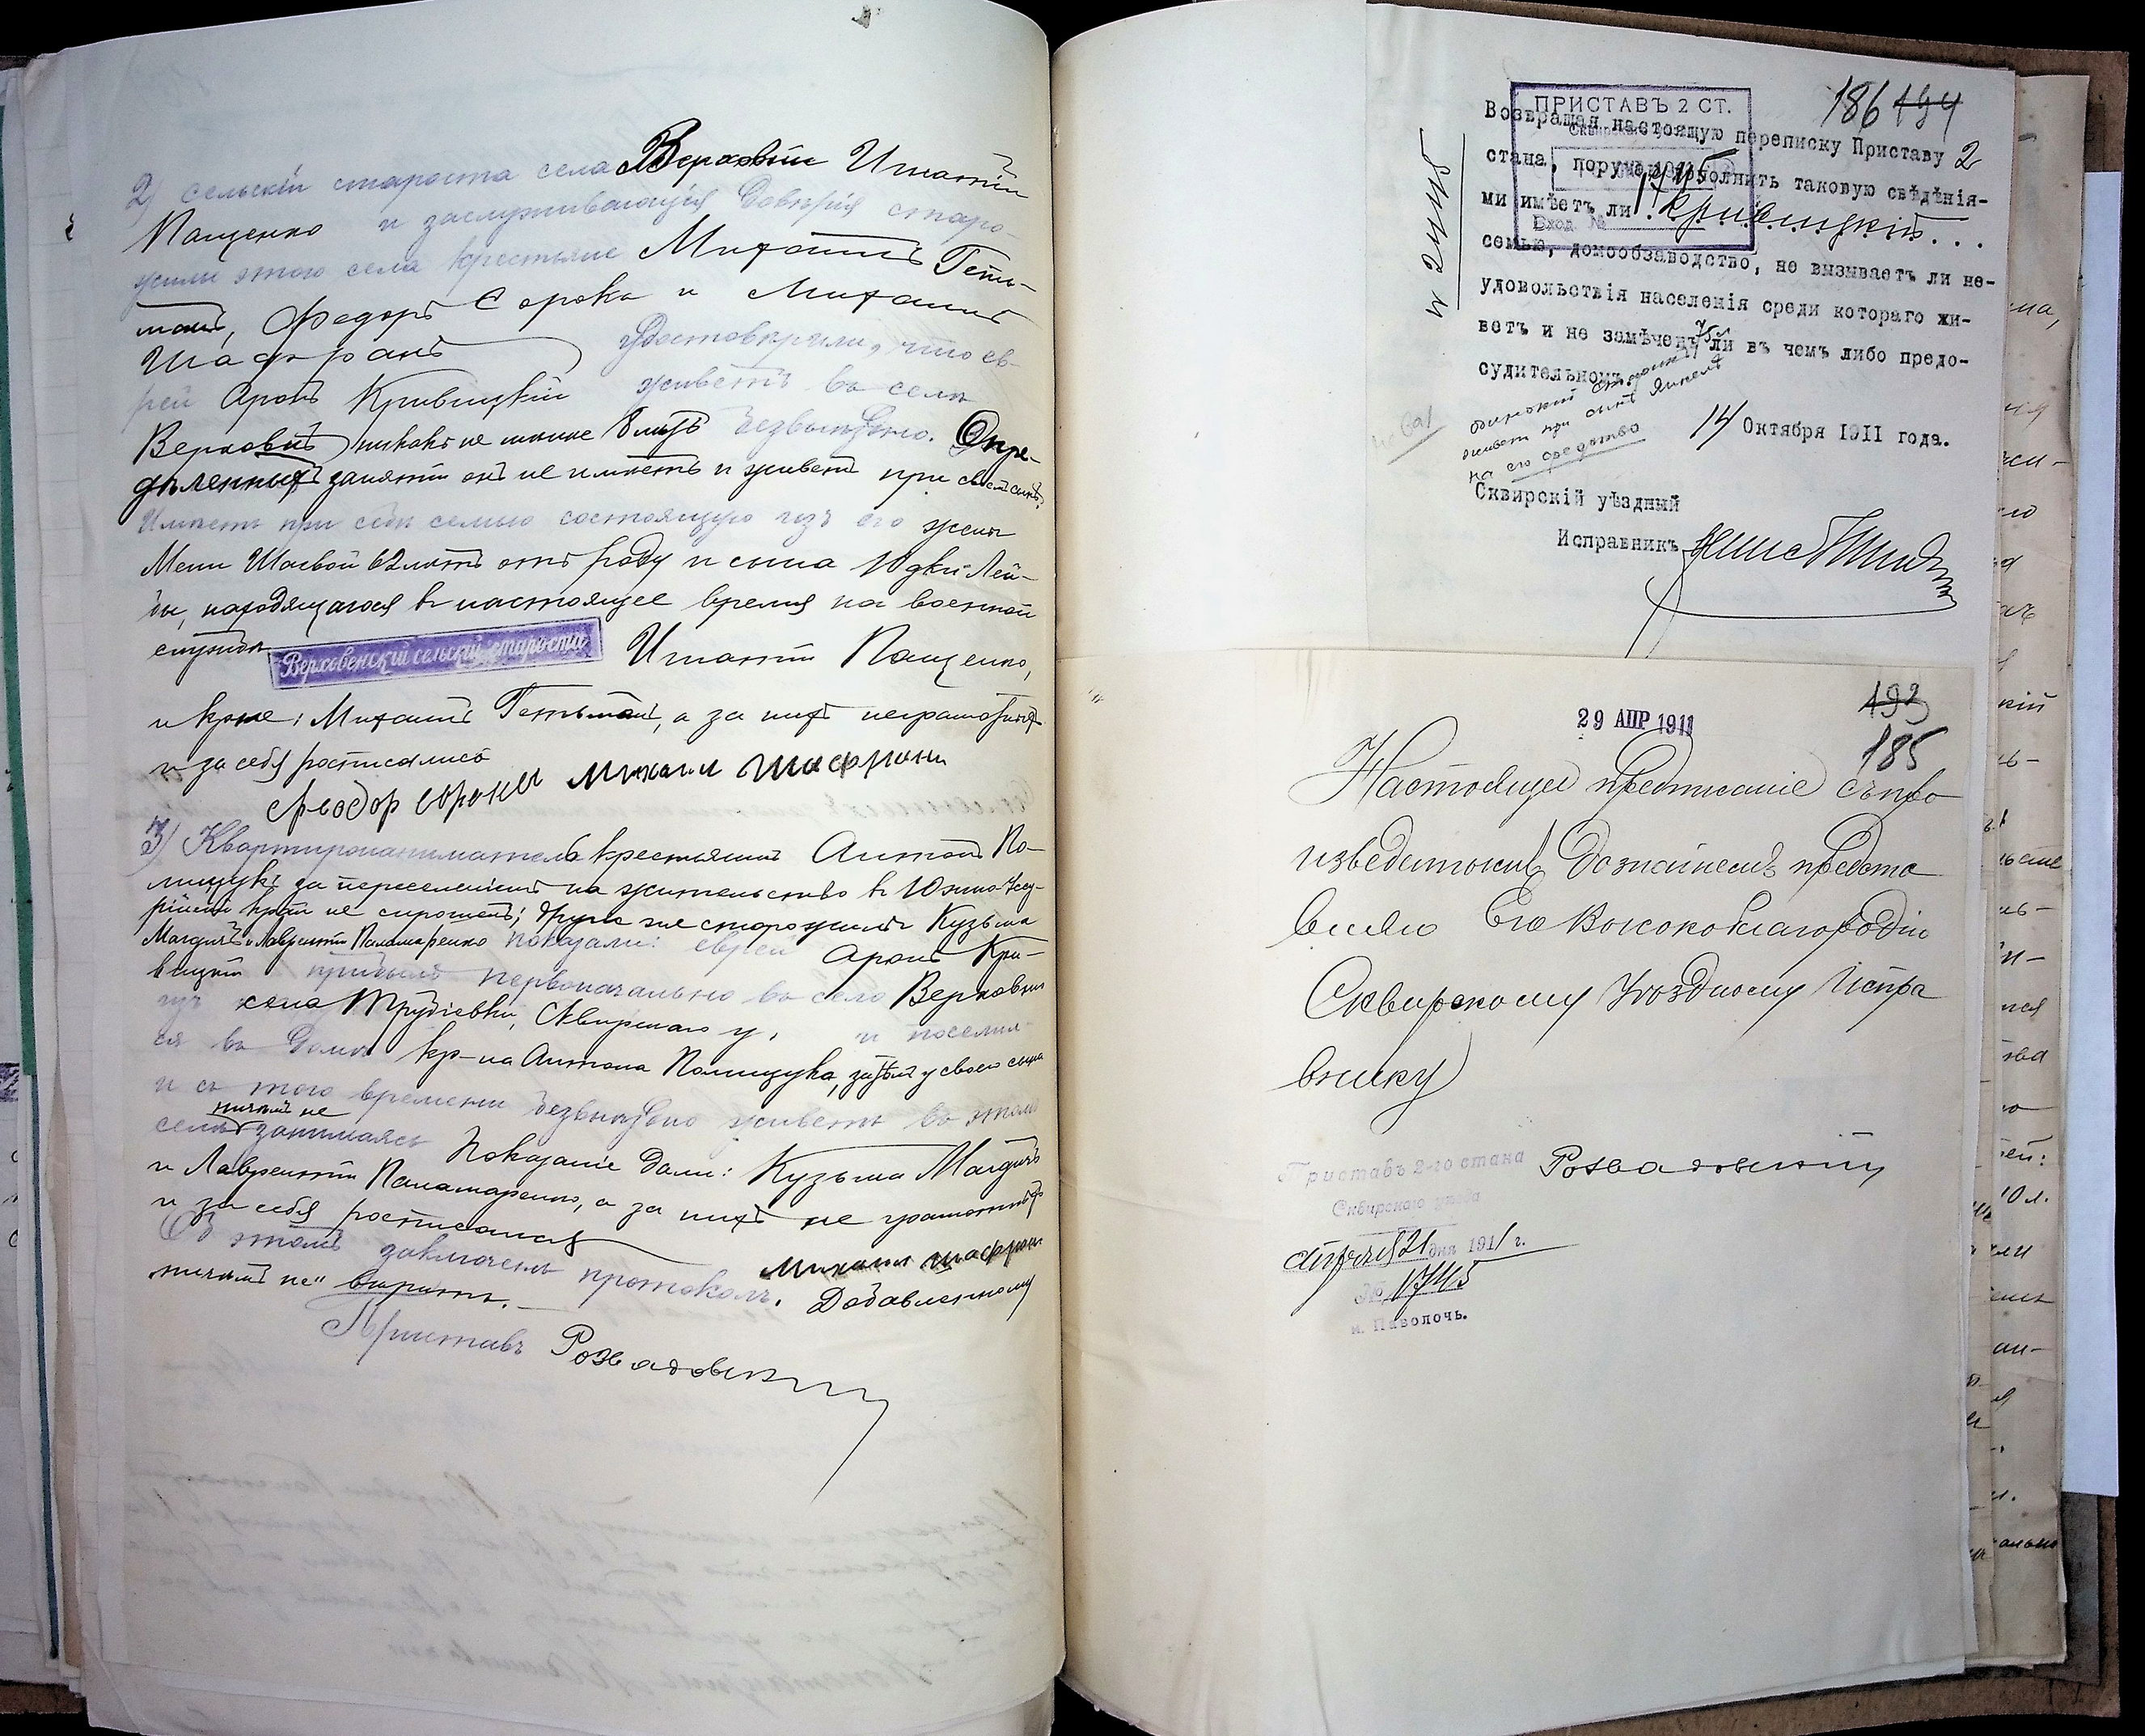 2) сельскій староста села Верховни Игнатій
Пащенко и заслуживающія довѣрія старо-
жилы этого села крестьяне Михаилъ Геть-
манъ, Федоръ Сорока и Михаилъ
Шафранъ удостовѣрили, что ев-
рей Аронъ Кривицкій живетъ въ селѣ
Верховнѣ никакъ не менѣе 8 лѣтъ безвыѣздно. Опре-
дѣленныхъ занятій онъ не имѣетъ и живетъ при своемъ сынѣ.
Имѣетъ при себѣ семью состоящую изъ его жены
62 лѣтъ отъ роду и сына Юдки-Лей-
бы, находящагося въ настоящее время на военной
службѣ
Верховенскій сельскій староста
Игнатій Пащенко,
и кр-не: Михаилъ Гетьманъ, а за нихъ неграмотныхъ
и за себя росписались
Фьодор Сорока Михаил Шафран
3) Квартиронаниматель крестьянинъ Антонъ По-
лищукъ за переселеніемъ на жительство въ Южно-Уссу-
рійскій край не спрошенъ; другіе же старожилы Кузьма
и Лаврентій Паламаренко показали: еврей Аронъ Кри-
вицкій прибылъ первоначально въ село Верховню
изъ села Трубіевки, Сквирскаго у., и поселил-
ся въ домѣ кр-на Антона Полищука, у своего сына
и съ того времени безвыѣздно живетъ въ этомъ
ничѣмъ не
селѣ занимаясь Показаніе дали: Кузьма
и Лаврентій Паламаренко, а за нихъ не грамотныхъ
и за себя росписался
Михаил Шафран
Объ этомъ заключенъ протоколъ. Добавленному
"ничѣмъ не" вѣрить.
Приставъ Розвадовскій
186 194
ПРИСТАВЪ 2 СТ.
Возвращая настоящую переписку Приставу 2
стана, поручаю дополнить таковую свѣдѣнія-
ми имѣетъ ли Кривицкій...
Вход. №
семью, домообзаводство, не вызываетъ ли не-
удовольствія населенія среди котораго жи-
ветъ и не замѣченъ ли въ чемъ либо предо-
судительномъ
живетъ при сынѣ
на его средства
14 Октября 1911 года.
Сквирскій уѣздный
Исправникъ
29 АПР 1911
193
185
Настоящее предписаніе съ про
изведеннымъ дознаніемъ предста
вляю Его Высокоблагородію
Сквирскому Уѣздному Испра
внику
Приставъ 2-го стана
Сквирскаго уѣзда
Розвадовскій
апрѣля 21 дня 1911 г.
№ 1745
м. Паволочь.